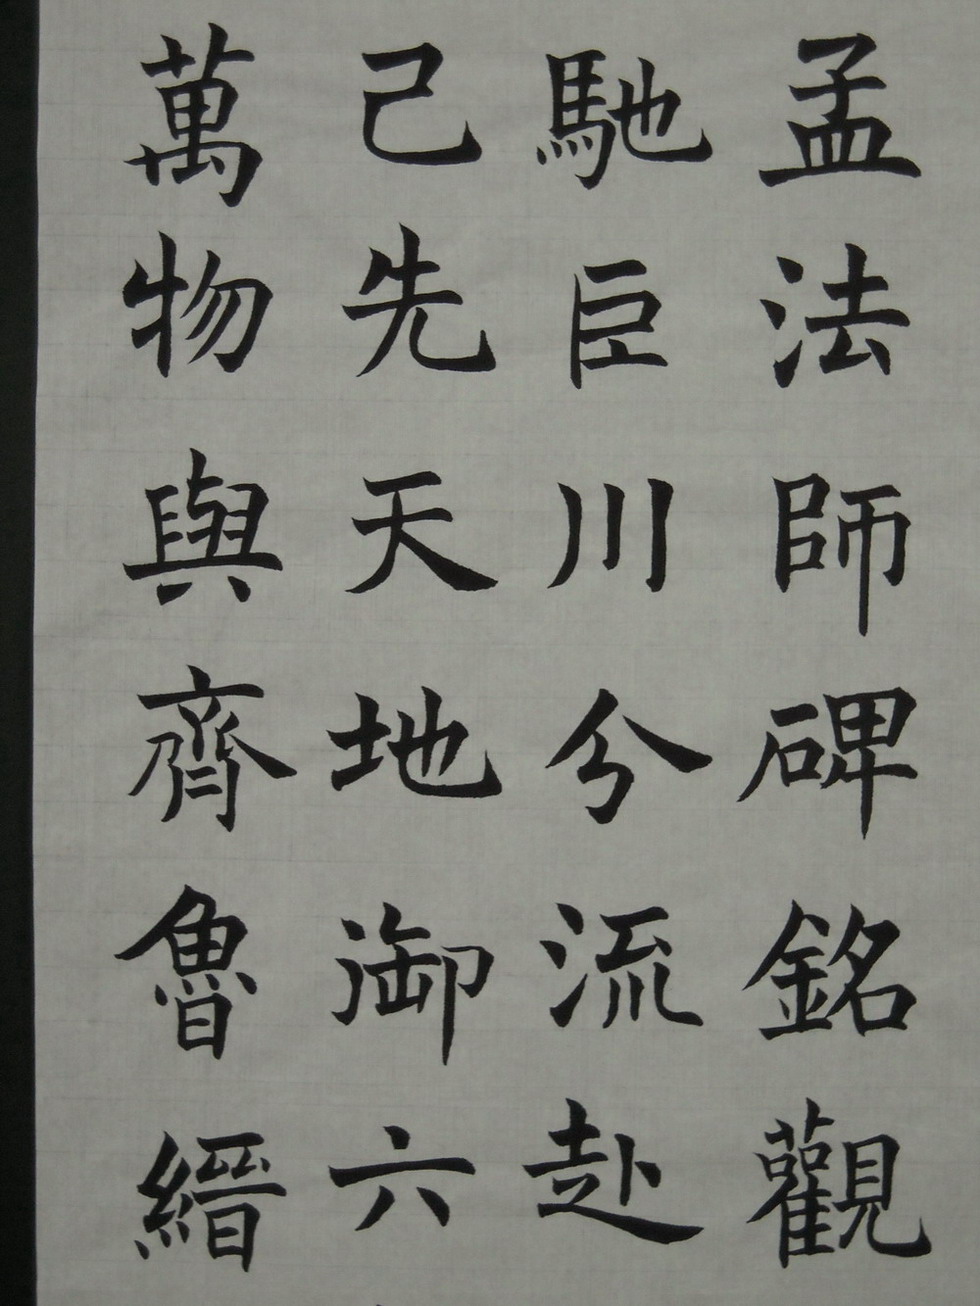 孟法師碑銘觀
馳巨川分流赴
己先天地御六
萬物與齊魯縉